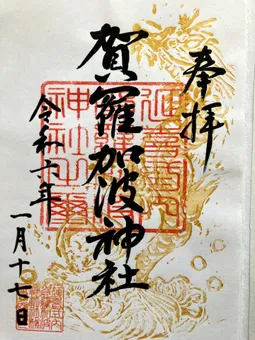 奉拝
延喜式内
賀羅加波神社
令和七年
一月十七日